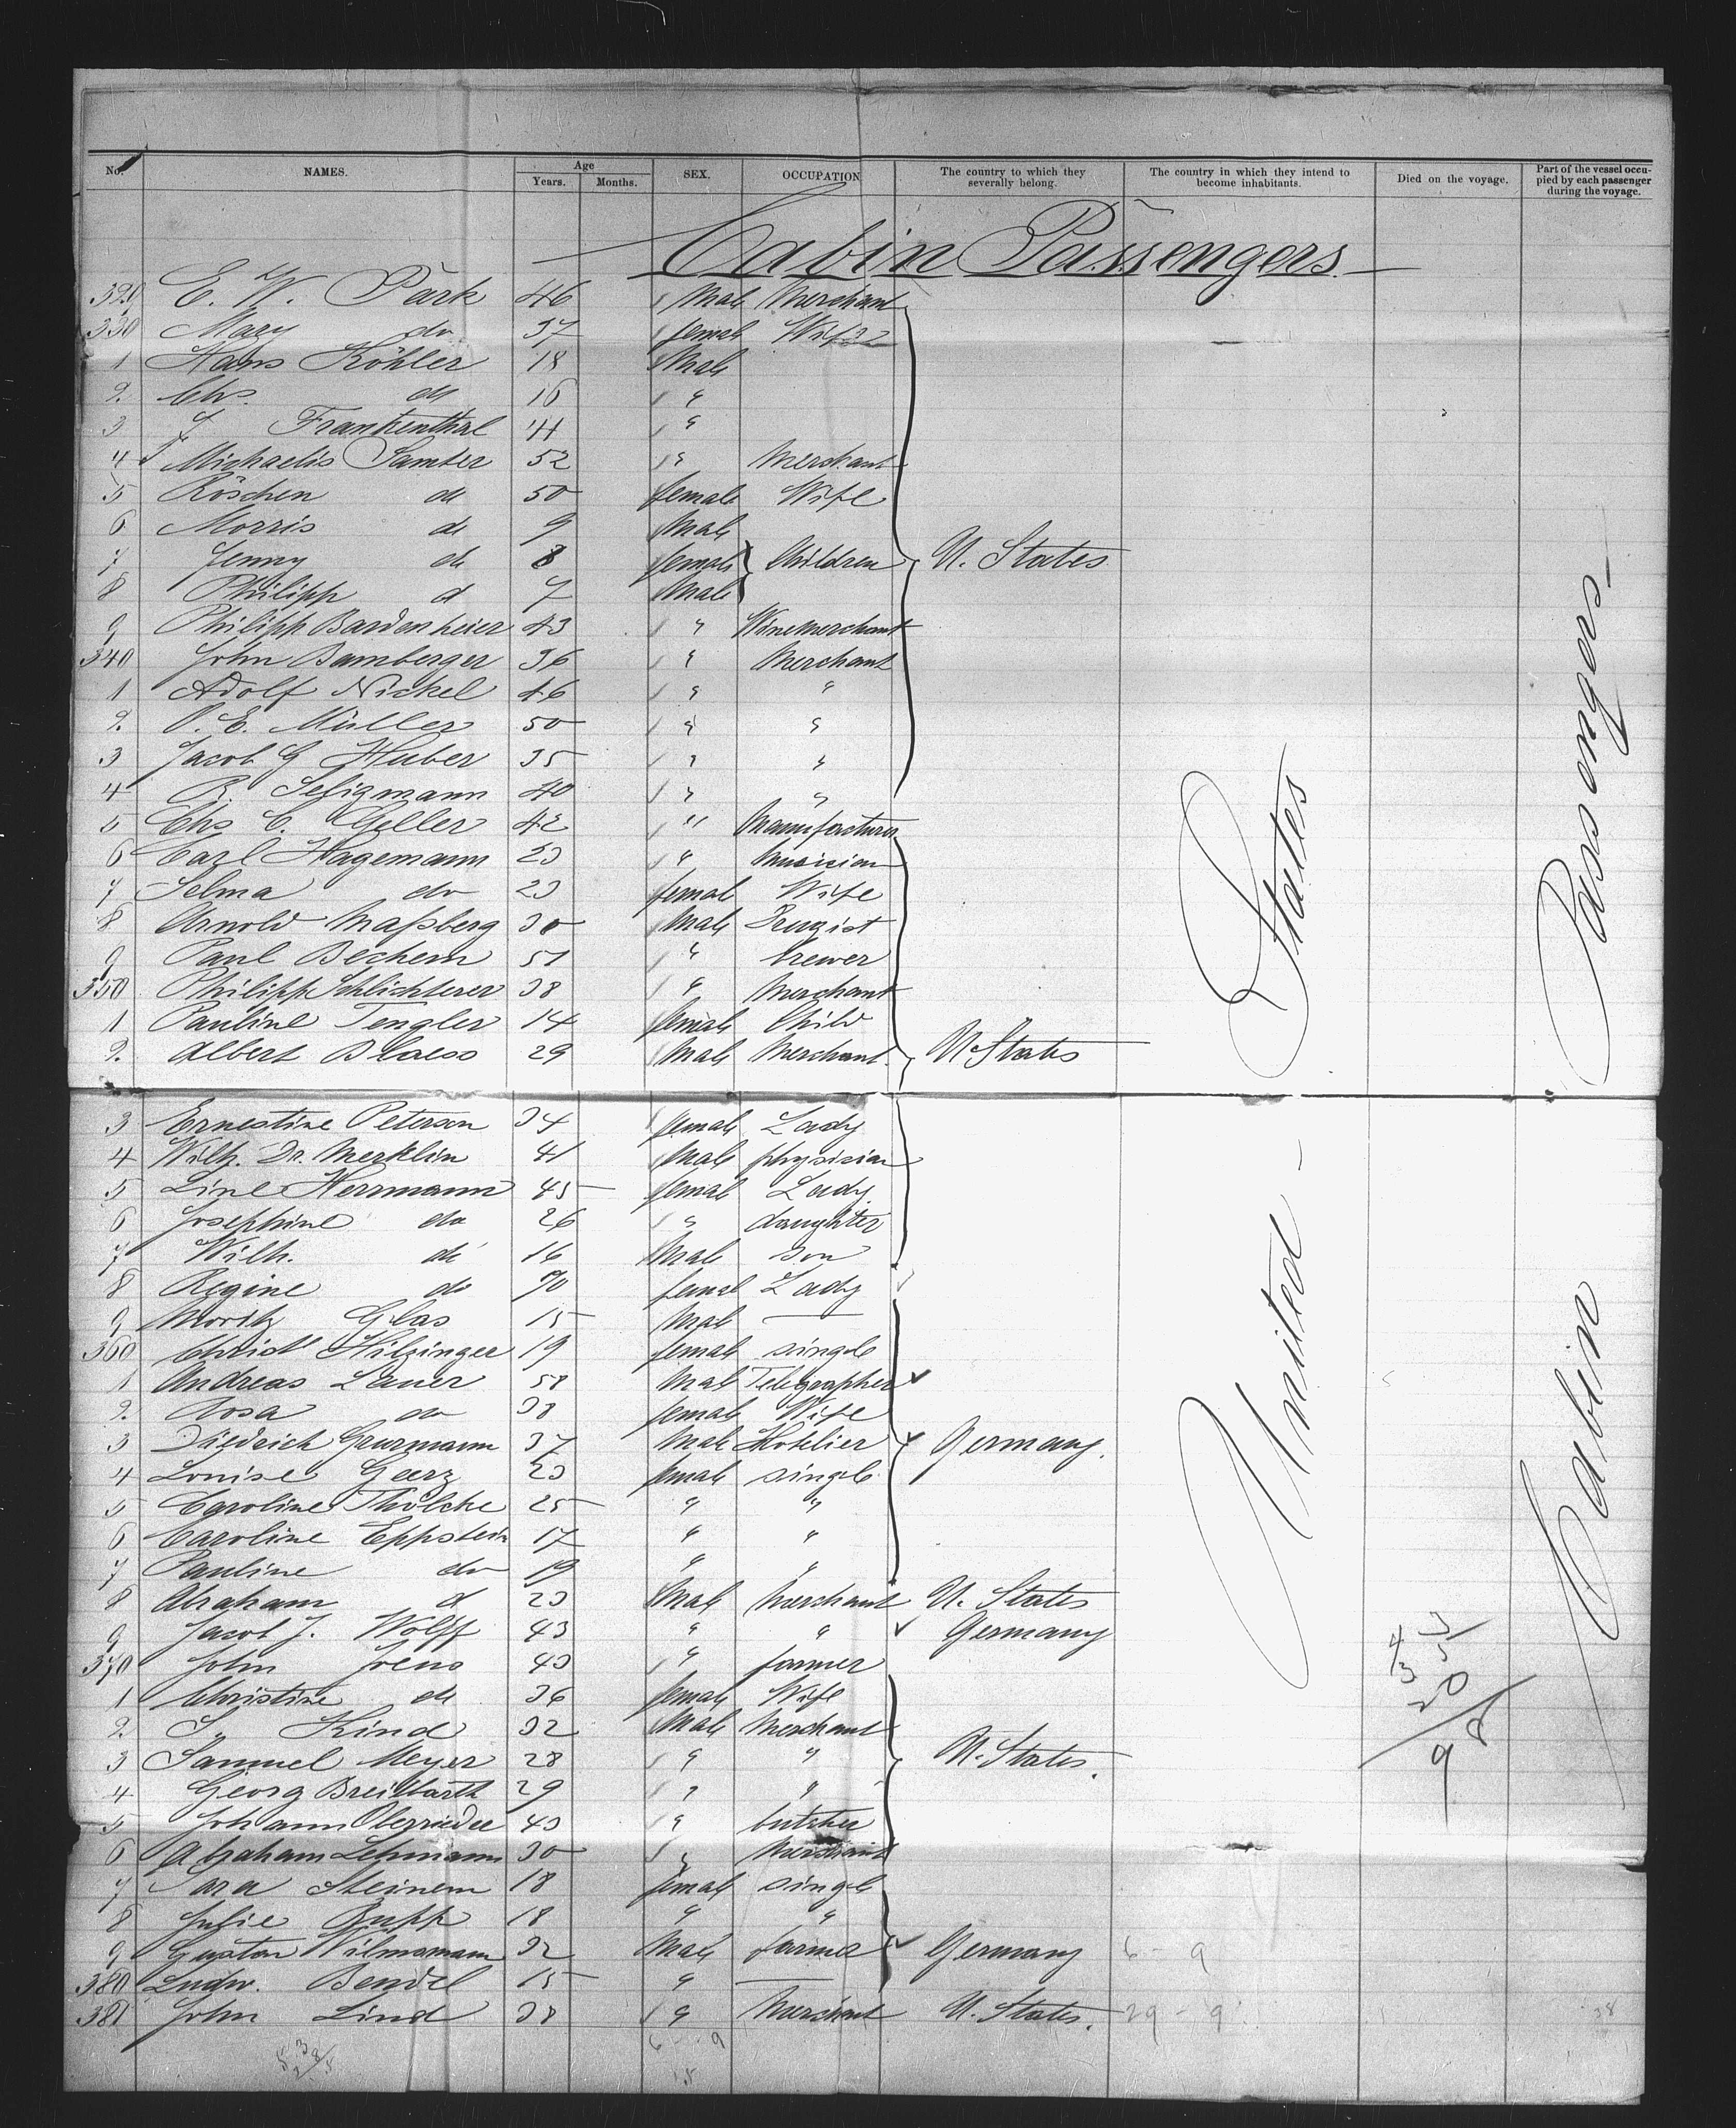 No. NAMES. Age Years. Months. SEX. OCCUPATION The country to which they severally belong. The country in which they intend to become inhabitants. Died on the voyage. Part of the vessel occupied by each passenger during the voyage.
Cabin Passengers
329 E. W. Park 46 Male Merchant
330 Mary do 37 female Wife
1 Hans Köhler 18 Male
2. Chs. do 16 "
3 Frankenthal 44 "
4 Michaelis Samter 52 " Merchant
5 Röschen do 50 female Wife
6 Morris do 9 Male
7 Jenny do 8 female Children U. States
8 Philipp d 7 Male
9 Philipp Bardenheier 43 " Winemerchant
340 John Bamberger 36 " Merchant
1 Adolf Nickel 46 " "
2. E. Müller 50 " "
3 Jacob G Huber 35 " "
4 R. 40 " "
5 Chs C. Geller 42 " Manufacturer
6 Carl Hagemann 23 " Musician
7 Selma do 23 female Wife
8 Arnold Maßberg 30 Male Drugist
9 Paul Bechem 51 " brewer
350 Philipp Schlichterer 38 " Merchant
1 Pauline Tengler 14 female Child
2. Albert Blaess 29 Male Merchant. U States
3 Ernestine Peterson 34 female Lady
4 Wilh. Dr. Merklin 41 Male physician
5 Line Herrmann 45 female Lady
6 Josephine do 26 " daughter
7 Wilh. do 16 Male son
8 Regine do 70 female Lady
9 Moritz Glas 15 Male —
360 Hilzinger 19 female single
1 Andreas Lauer 58 Male Telegrapher
2. Rosa do 38 female Wife
3 Diedrich Grurmann 37 Male Hotelier Germany.
4 Louise Geerz 23 female single
5 Caroline Thölcke 25 " "
6 Caroline Eppstein 17 " "
7 Pauline do 19 " "
8 Abraham d 23 Male Merchant U. States
9 Jacob J. Wolff 43 " " Germany
370 John Jrens 43 " farmer
1 Christine do 36 female Wife
2. S. Kind 32 Male Merchant
3 Samuel Meyer 28 " " U. States.
4 Georg Breitbarth 29 " "
5 Johann Oberrieder 43 " butcher
6 Abraham Lehmann 30 " Merchant
7 Sara Steinem 18 female single
8 Julie Rupp 18 " "
9 Gustav Wilmsmann 32 Male farmer Germany 6 - 9
380 Ludw. Bendel 15 " —
381 John Lind 38 " Merchant U. States. 29 - 9
6 - 9
United States
Cabin Passengers